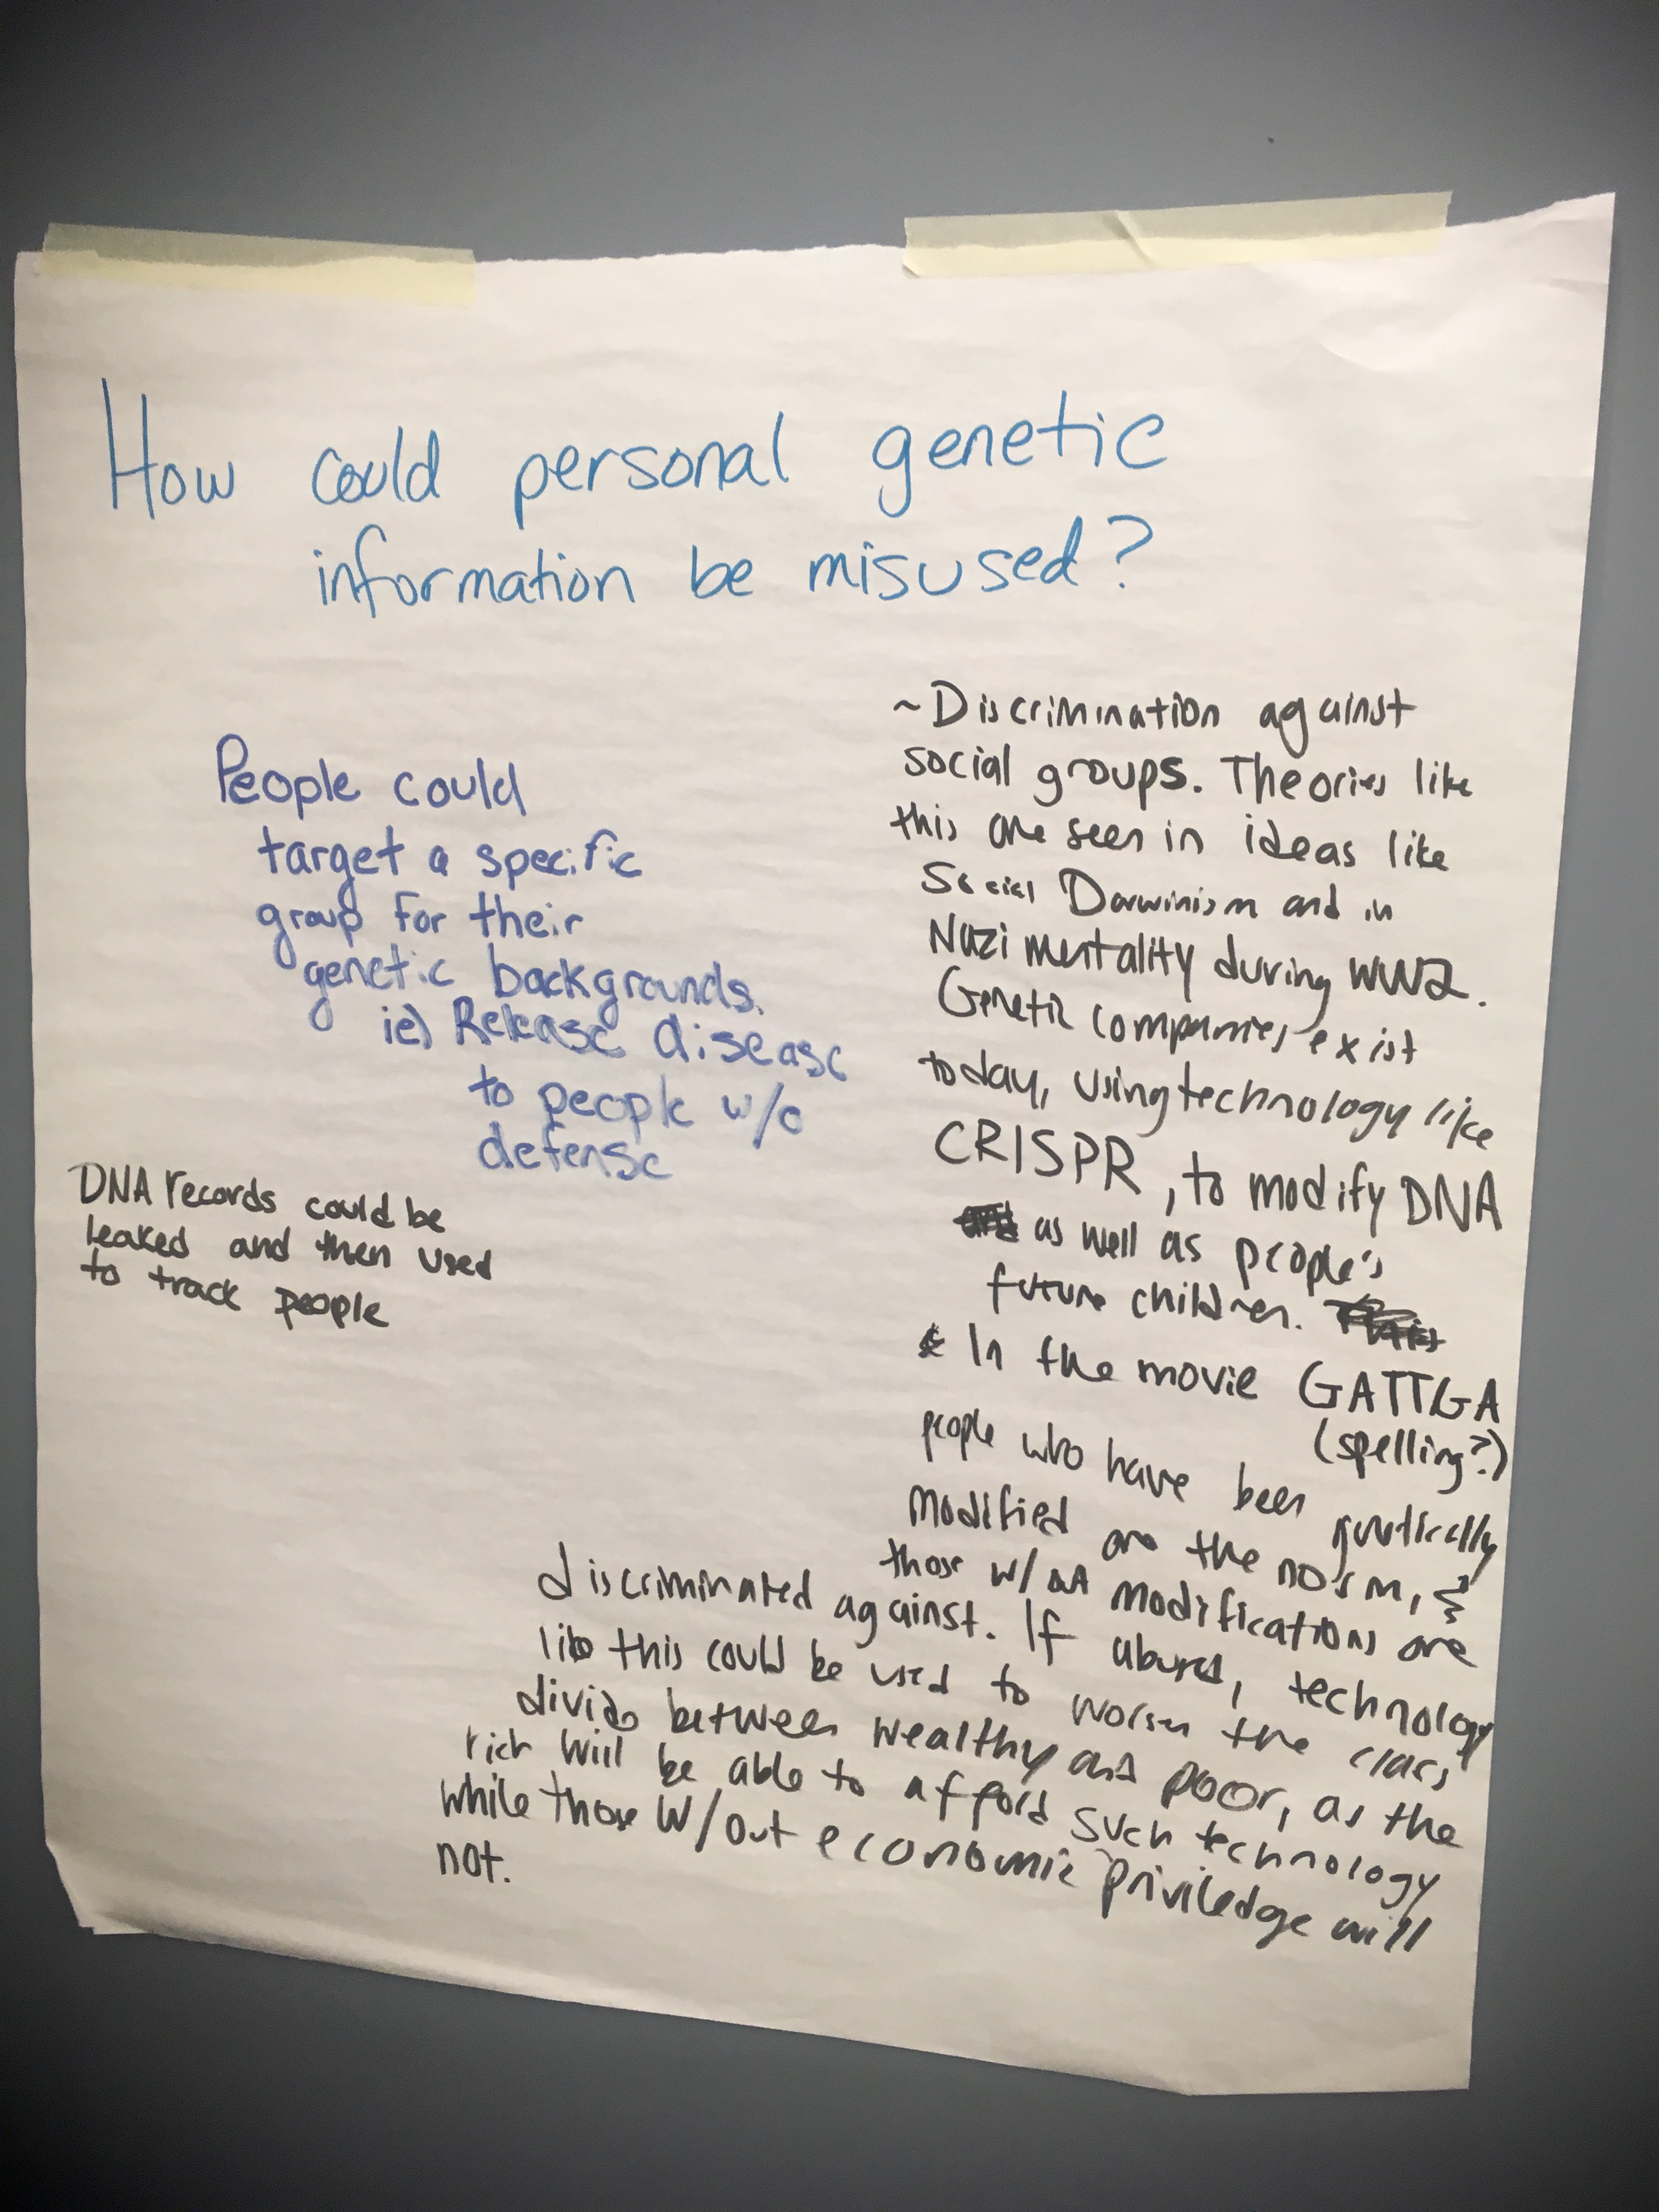 How could personal genetic
information be misused?
People could
target a specific
group for their
genetic backgrounds.
ie) Release disease
to people w/o
defense
DNA records could be
leaked and then used
to track people
~Discrimination against
social groups. Theories like
this are seen in ideas like
Social Darwinism and in
Nazi mentality during WW2.
Genetic companies exist
today, using technology like
CRISPR, to modify DNA
as well as people's
future children.
* In the movie GATTGA
(spelling?)
people who have been genetically
modified are the norm, &
those w/out modifications are
discriminated against. If abused, technology
like this could be used to worsen the class
divide between wealthy and poor, as the
rich will be able to afford such technology
while those w/out economic priviledge will
not.